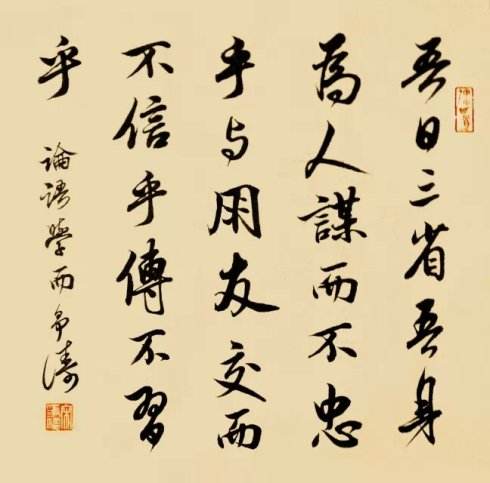 吾日三省吾身
為人謀而不忠
乎与朋友交而
不信乎傳不習
乎
論語學而